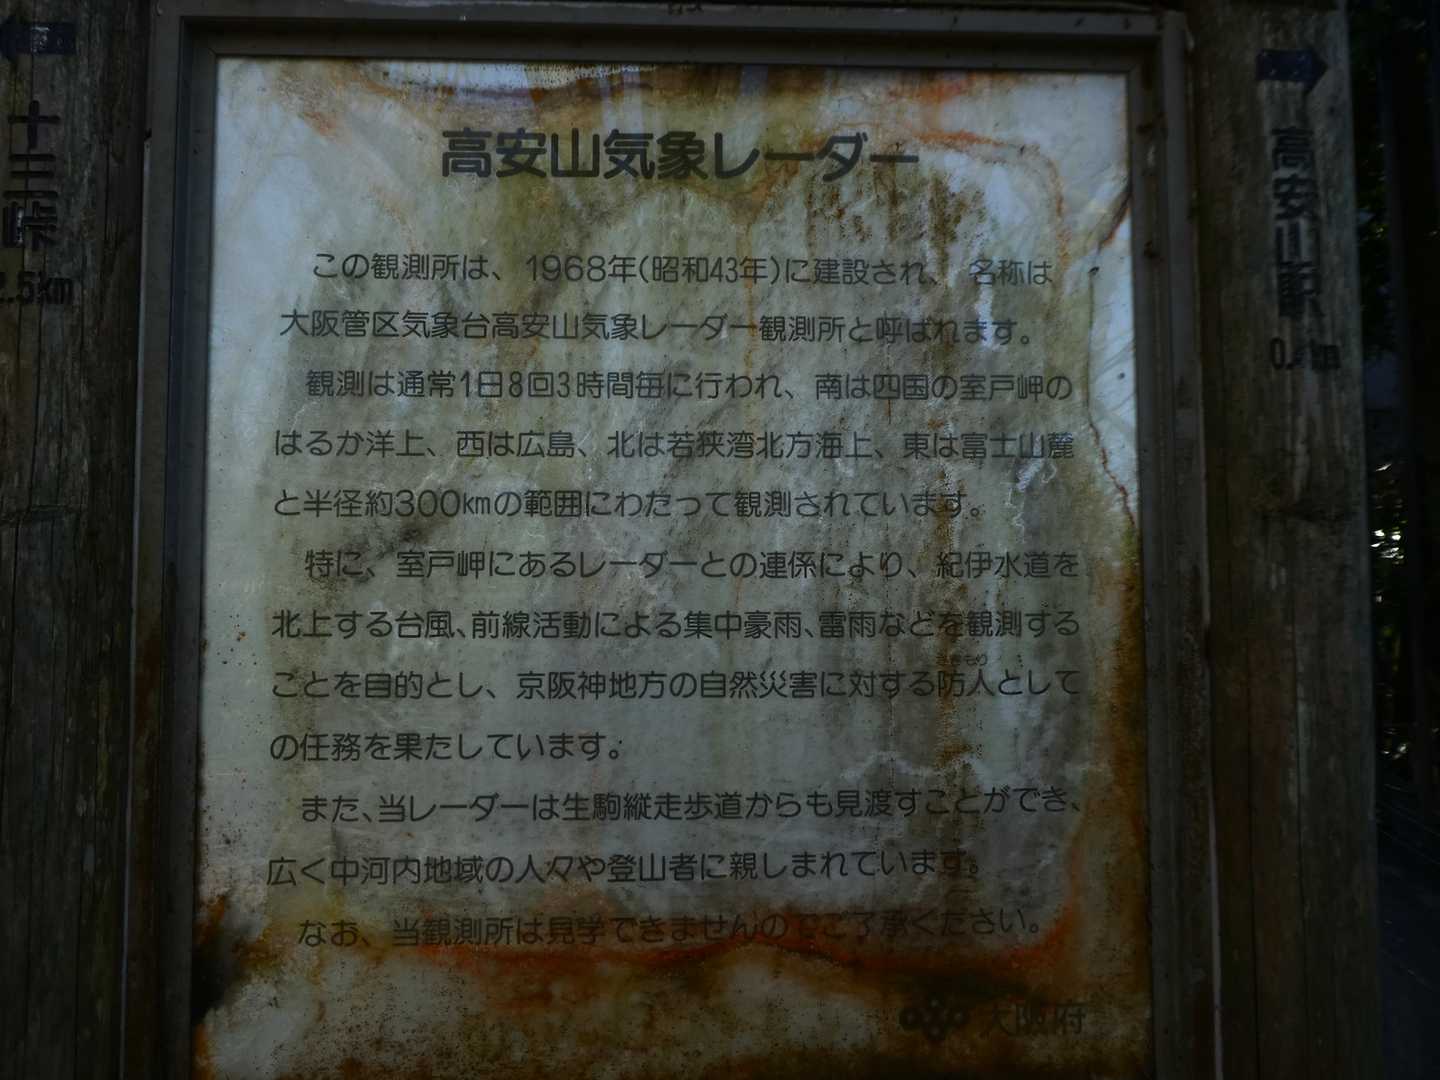 十三峠
2.5km
高安山気象レーダー
この観測所は、1968年(昭和43年)に建設され、名称は
大阪管区気象台高安山気象レーダー観測所と呼ばれます。
観測は通常1日8回3時間毎に行われ、南は四国の室戸岬の
はるか洋上、西は広島、北は若狭湾北方海上、東は富士山麓
と半径約300kmの範囲にわたって観測されています。
特に、室戸岬にあるレーダーとの連係により、紀伊水道を
北上する台風、前線活動による集中豪雨、雷雨などを観測する
ことを目的とし、京阪神地方の自然災害に対する防人として
さきもり
の任務を果たしています。
また、当レーダーは生駒縦走歩道からも見渡すことができ、
広く中河内地域の人々や登山者に親しまれています。
なお、当観測所は見学できませんのでご了承ください。
大阪府
高安山駅